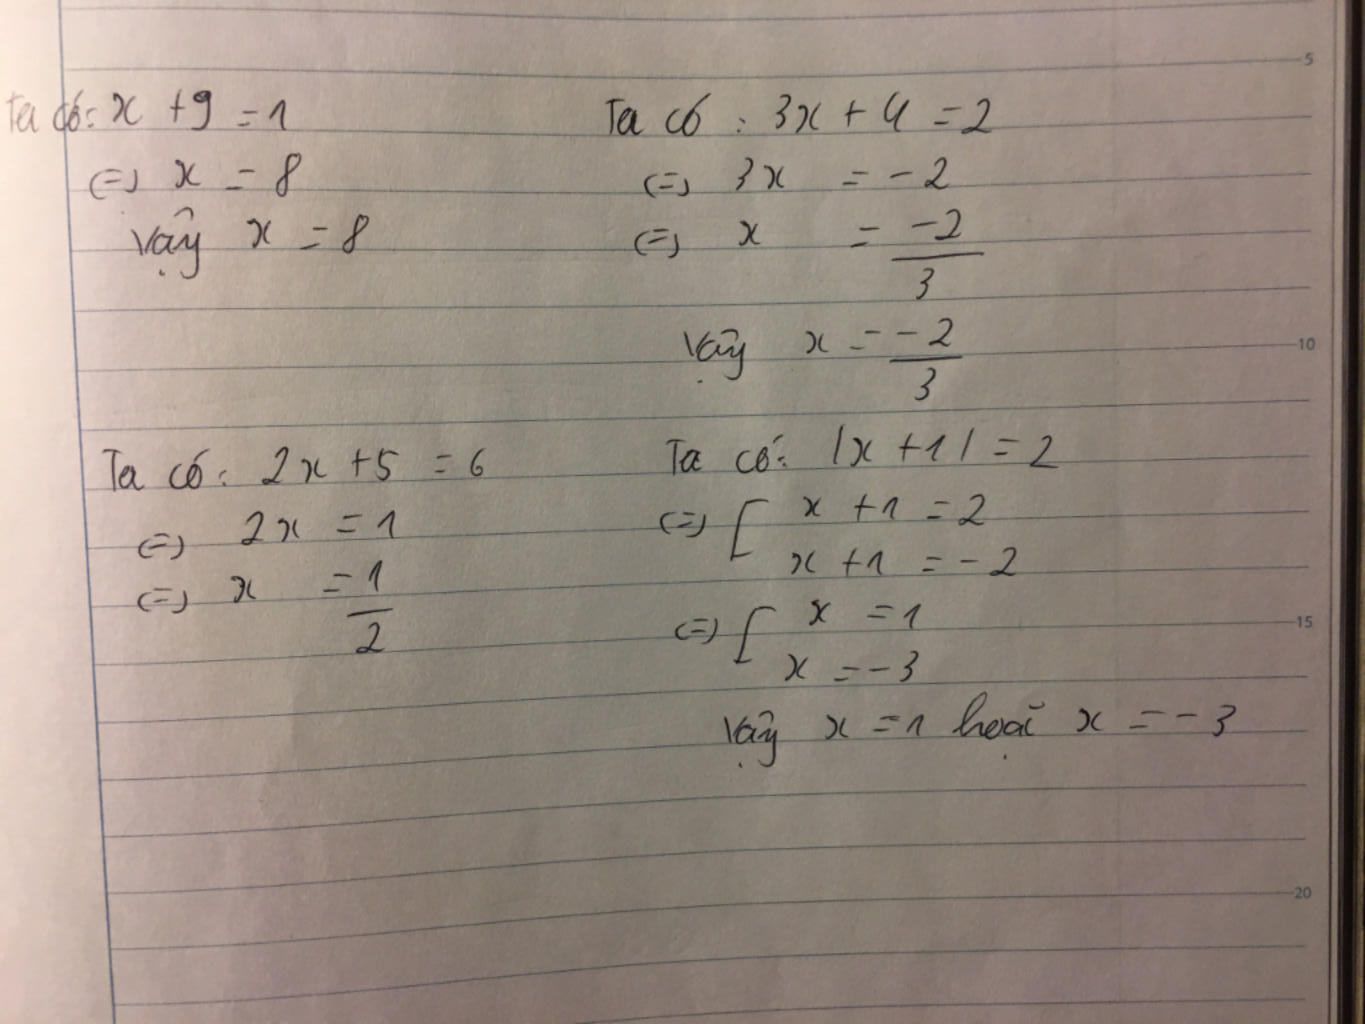 Ta có: x + 9 = 1
(=) x = 8
Vậy x = 8
Ta có : 3x + 4 = 2
(=) 3x = -2
(=) x = -2/3
Vậy x = -2/3
Ta có : 2x + 5 = 6
(=) 2x = 1
(=) x = 1/2
Ta có: |x + 1| = 2
(=) [ x + 1 = 2
x + 1 = -2
(=) [ x = 1
x = -3
Vậy x = 1 hoặc x = -3
5
10
15
20